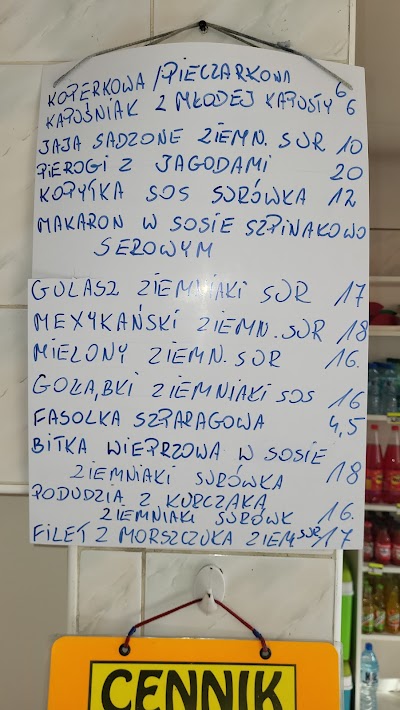 KOPERKOWA/PIECZARKOWA 6
KAPUŚNIAK Z MŁODEJ KAPUSTY 6
JAJA SADZONE ZIEMN. SUR 10
PIEROGI Z JAGODAMI 20
KOPYTKA SOS SURÓWKA 12
MAKARON W SOSIE SZPINAKOWO
SEROWYM
GULASZ ZIEMNIAKI SUR 17
MEXYKAŃSKI ZIEMN. SUR 18
MIELONY ZIEMN. SUR 16.
GOŁĄBKI ZIEMNIAKI SOS 16
FASOLKA SZPARAGOWA 4,5
BITKA WIEPRZOWA W SOSIE
ZIEMNIAKI SURÓWKA 18
PODUDZIA Z KURCZAKA
ZIEMNIAKI SURÓWK 16.
FILET Z MORSZCZUKA ZIEM SUR 17
CENNIK